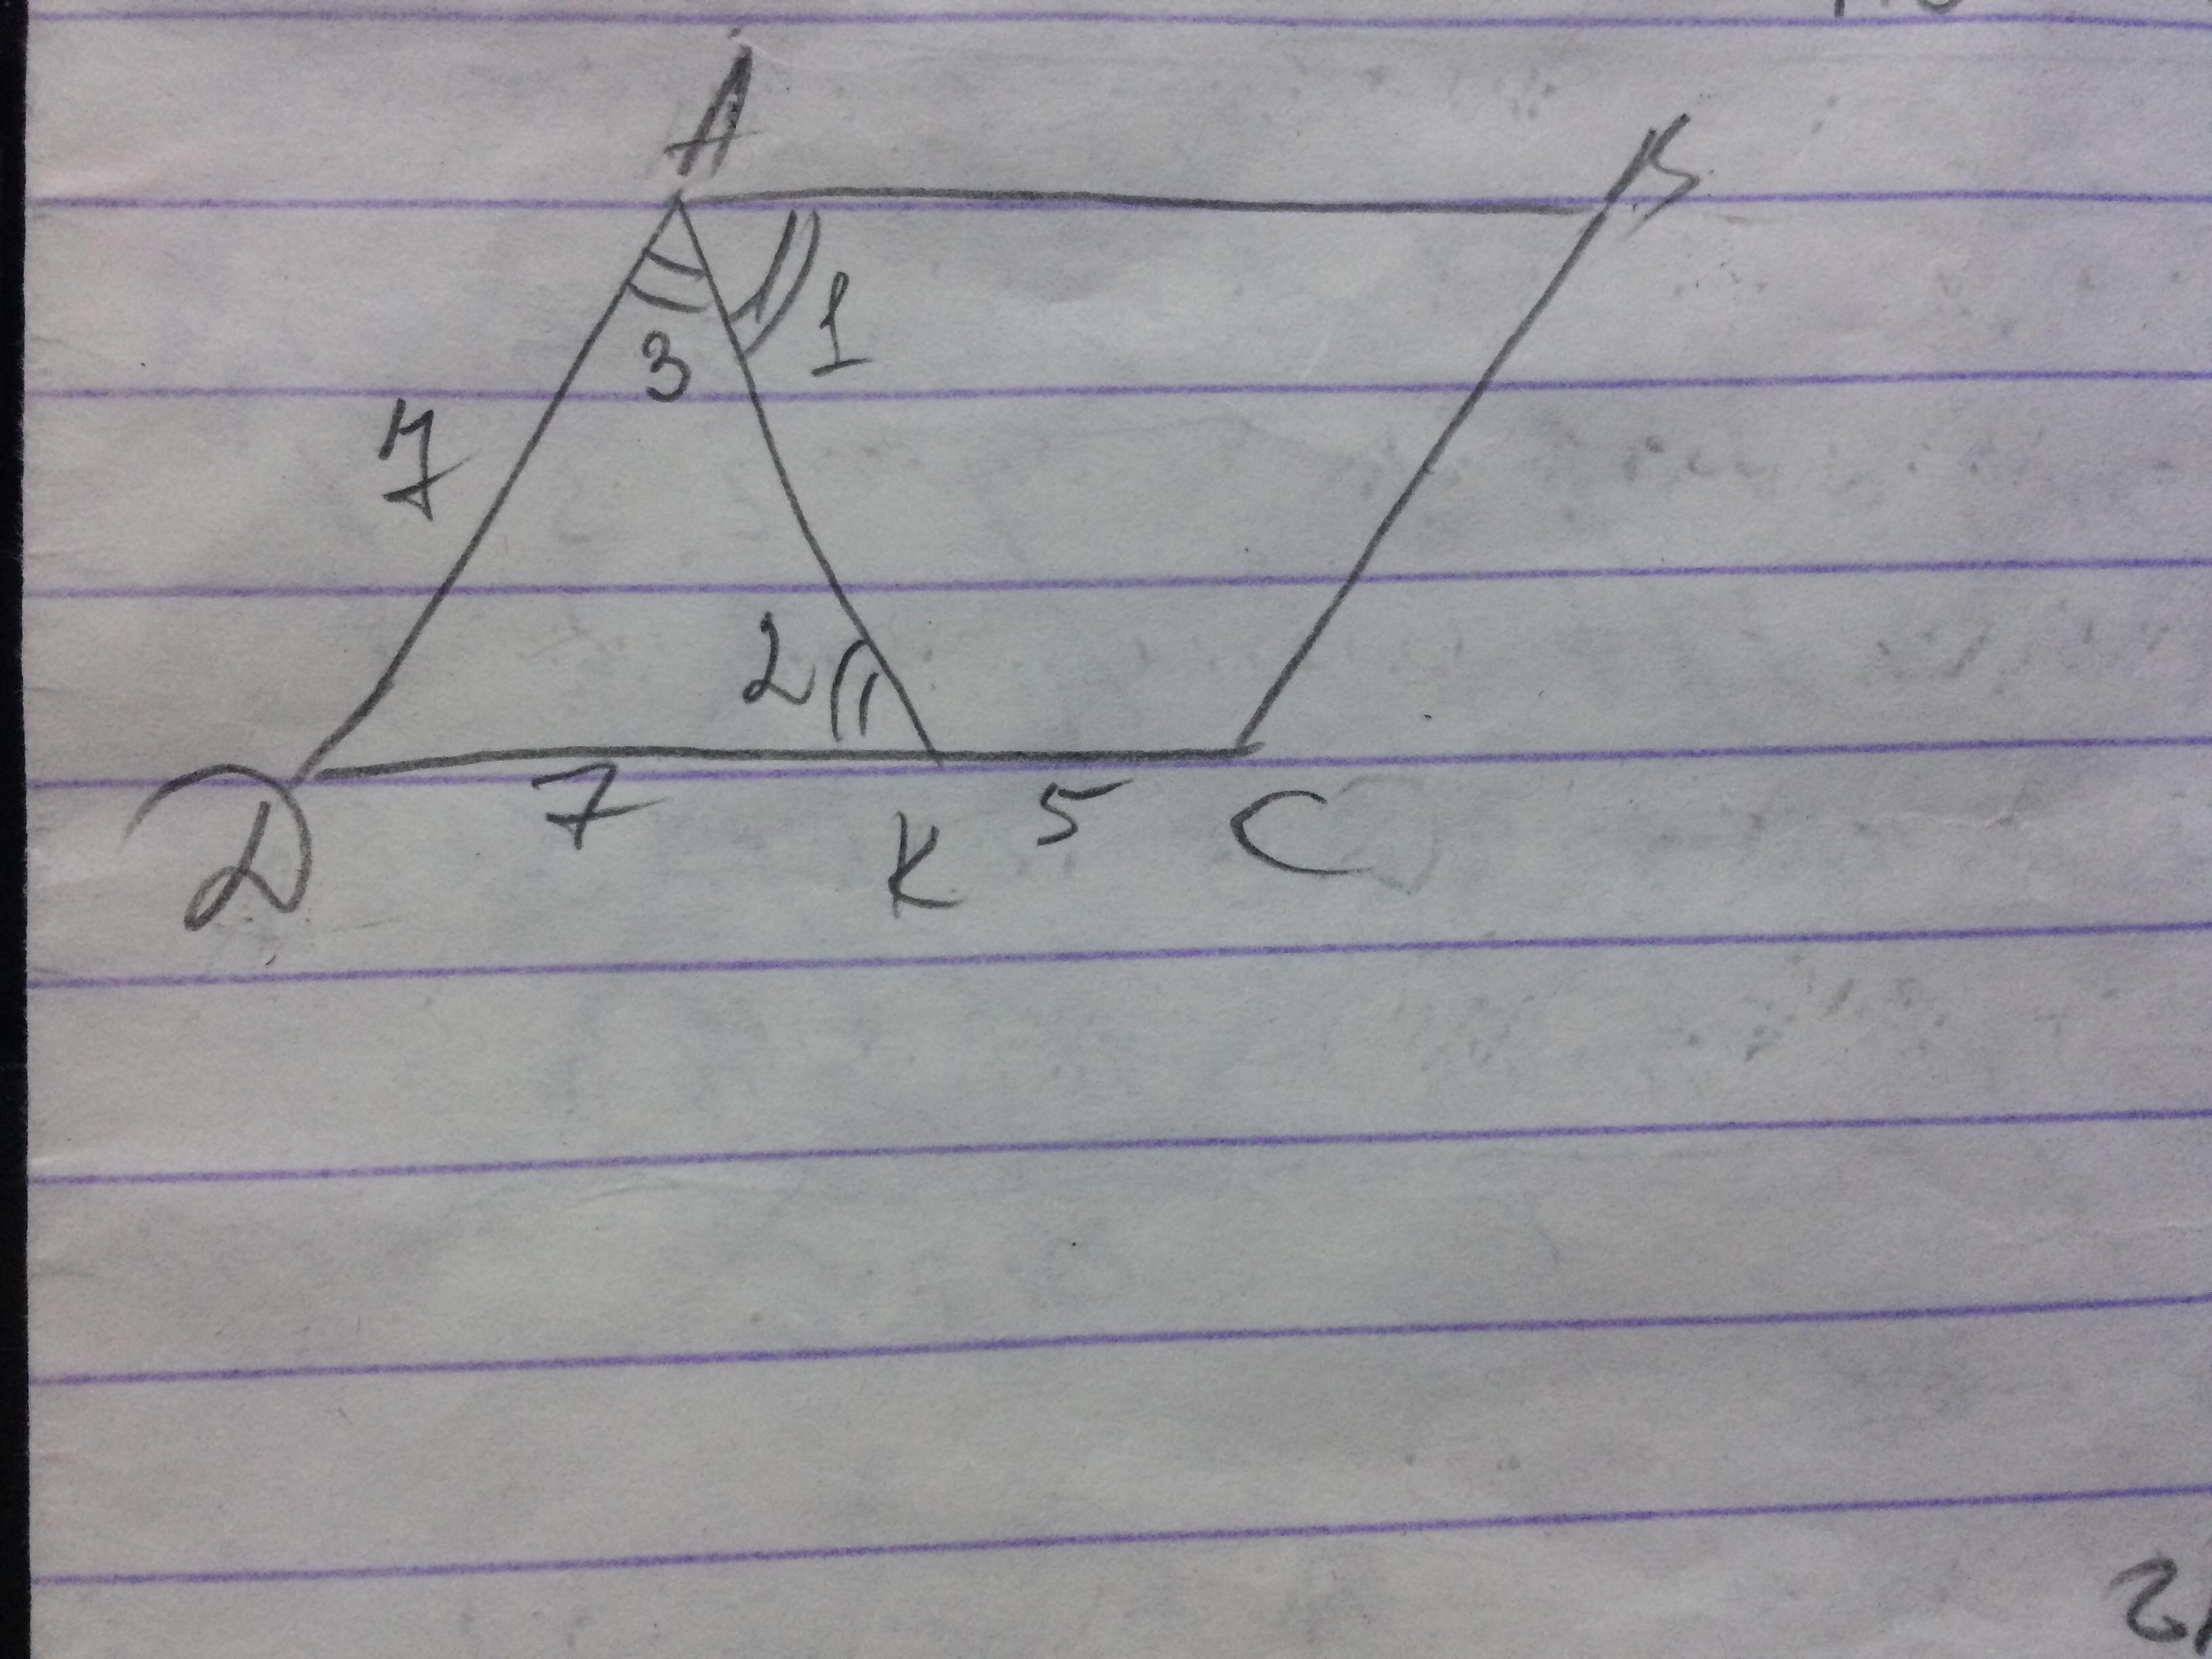 A
B
1
3
7
2
7
5
D
K
C
2